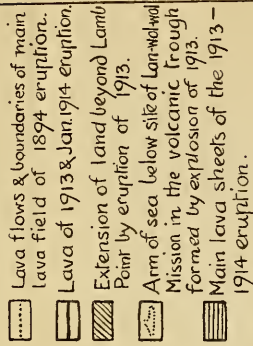 Lava flows & boundaries of main
lava field of 1894 eruption.
Lava of 1913 & Jan. 1914 eruption.
Extension of land beyond Lamb
Point by eruption of 1913.
Arm of sea below site of Lan-wol-wol
Mission in the volcanic trough
formed by explosion of 1913.
Main lava sheets of the 1913-
1914 eruption.